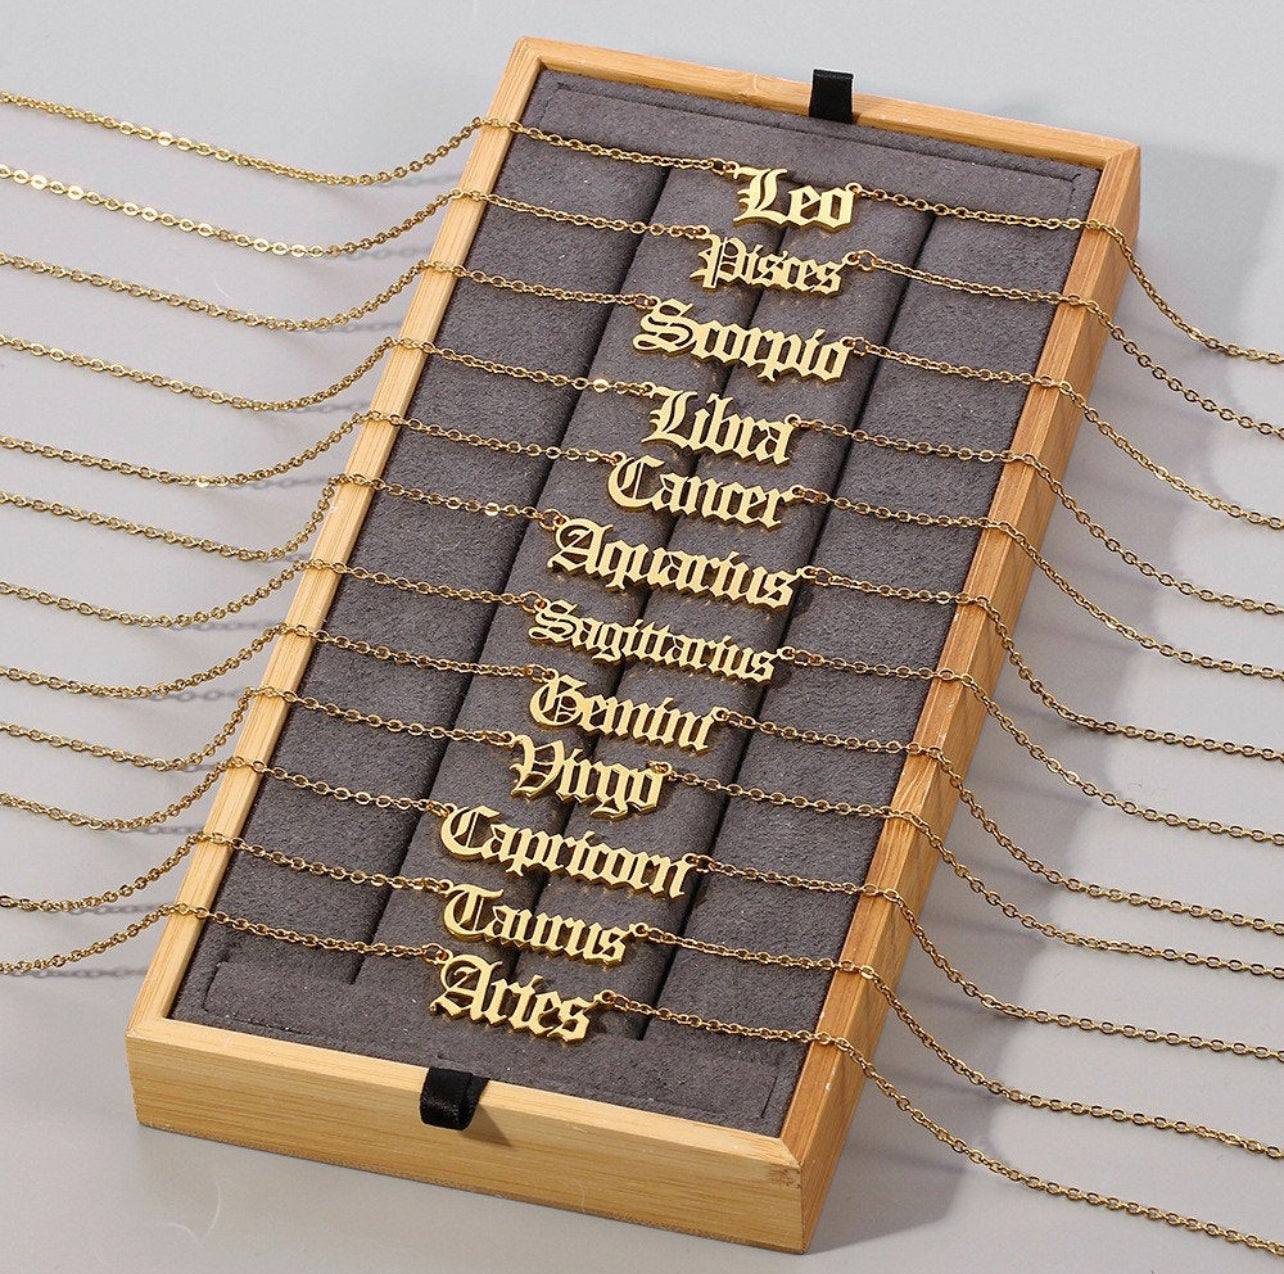 Leo
Pisces
Scorpio
Libra
Cancer
Aquarius
Sagittarius
Gemini
Virgo
Capricorn
Taurus
Aries